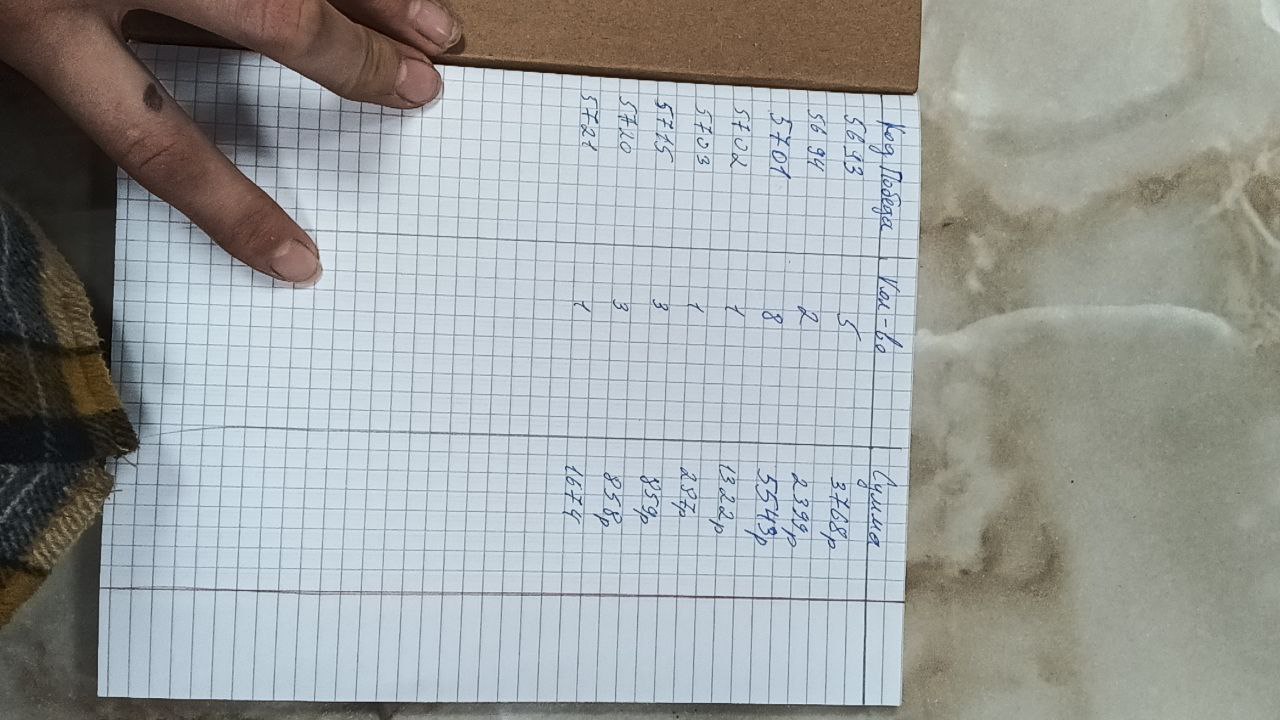 Код Победа Кол-во Сумма
5693 5 3768р
5694 2 2399р
5701 8 5543р
5702 1 1322р
5703 1 287р
5715 3 859р
5720 3 858р
5721 1 1674